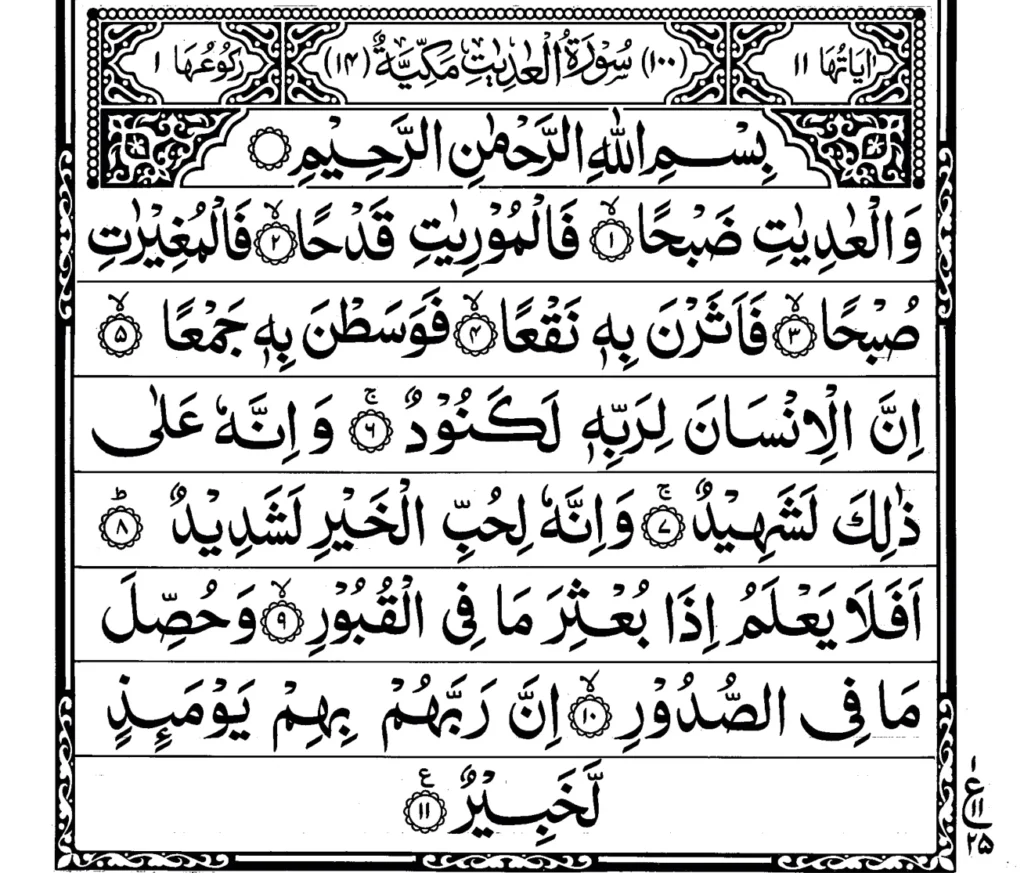 اٰيَاتُهَا ١١ (١٠٠) سُوْرَةُ الْعٰدِيٰتِ مَكِّيَّةٌ (١٤) رُكُوْعُهَا ١
بِسْمِ اللّٰهِ الرَّحْمٰنِ الرَّحِيْمِ
وَالْعٰدِيٰتِ ضَبْحًا ۙ‏﴿۱﴾ فَالْمُوْرِيٰتِ قَدْحًا ۙ‏﴿۲﴾ فَالْمُغِيْرٰتِ
صُبْحًا ۙ‏﴿۳﴾ فَاَثَرْنَ بِهٖ نَقْعًا ۙ‏﴿۴﴾ فَوَسَطْنَ بِهٖ جَمْعًا ۙ‏﴿۵﴾
اِنَّ الْاِنْسَانَ لِرَبِّهٖ لَكَنُوْدٌ ۚ‏﴿۶﴾ وَاِنَّهٗ عَلٰى
ذٰلِكَ لَشَهِيْدٌ ۚ‏﴿۷﴾ وَاِنَّهٗ لِحُبِّ الْخَيْرِ لَشَدِيْدٌ ؕ‏﴿۸﴾
اَفَلَا يَعْلَمُ اِذَا بُعْثِرَ مَا فِى الْقُبُوْرِ ۙ‏﴿۹﴾ وَحُصِّلَ
مَا فِى الصُّدُوْرِ ۙ‏﴿۱۰﴾ اِنَّ رَبَّهُمْ بِهِمْ يَوْمَئِذٍ
لَّخَبِيْرٌ ‏﴿۱۱﴾ ع
١
ع
١١
٢٥